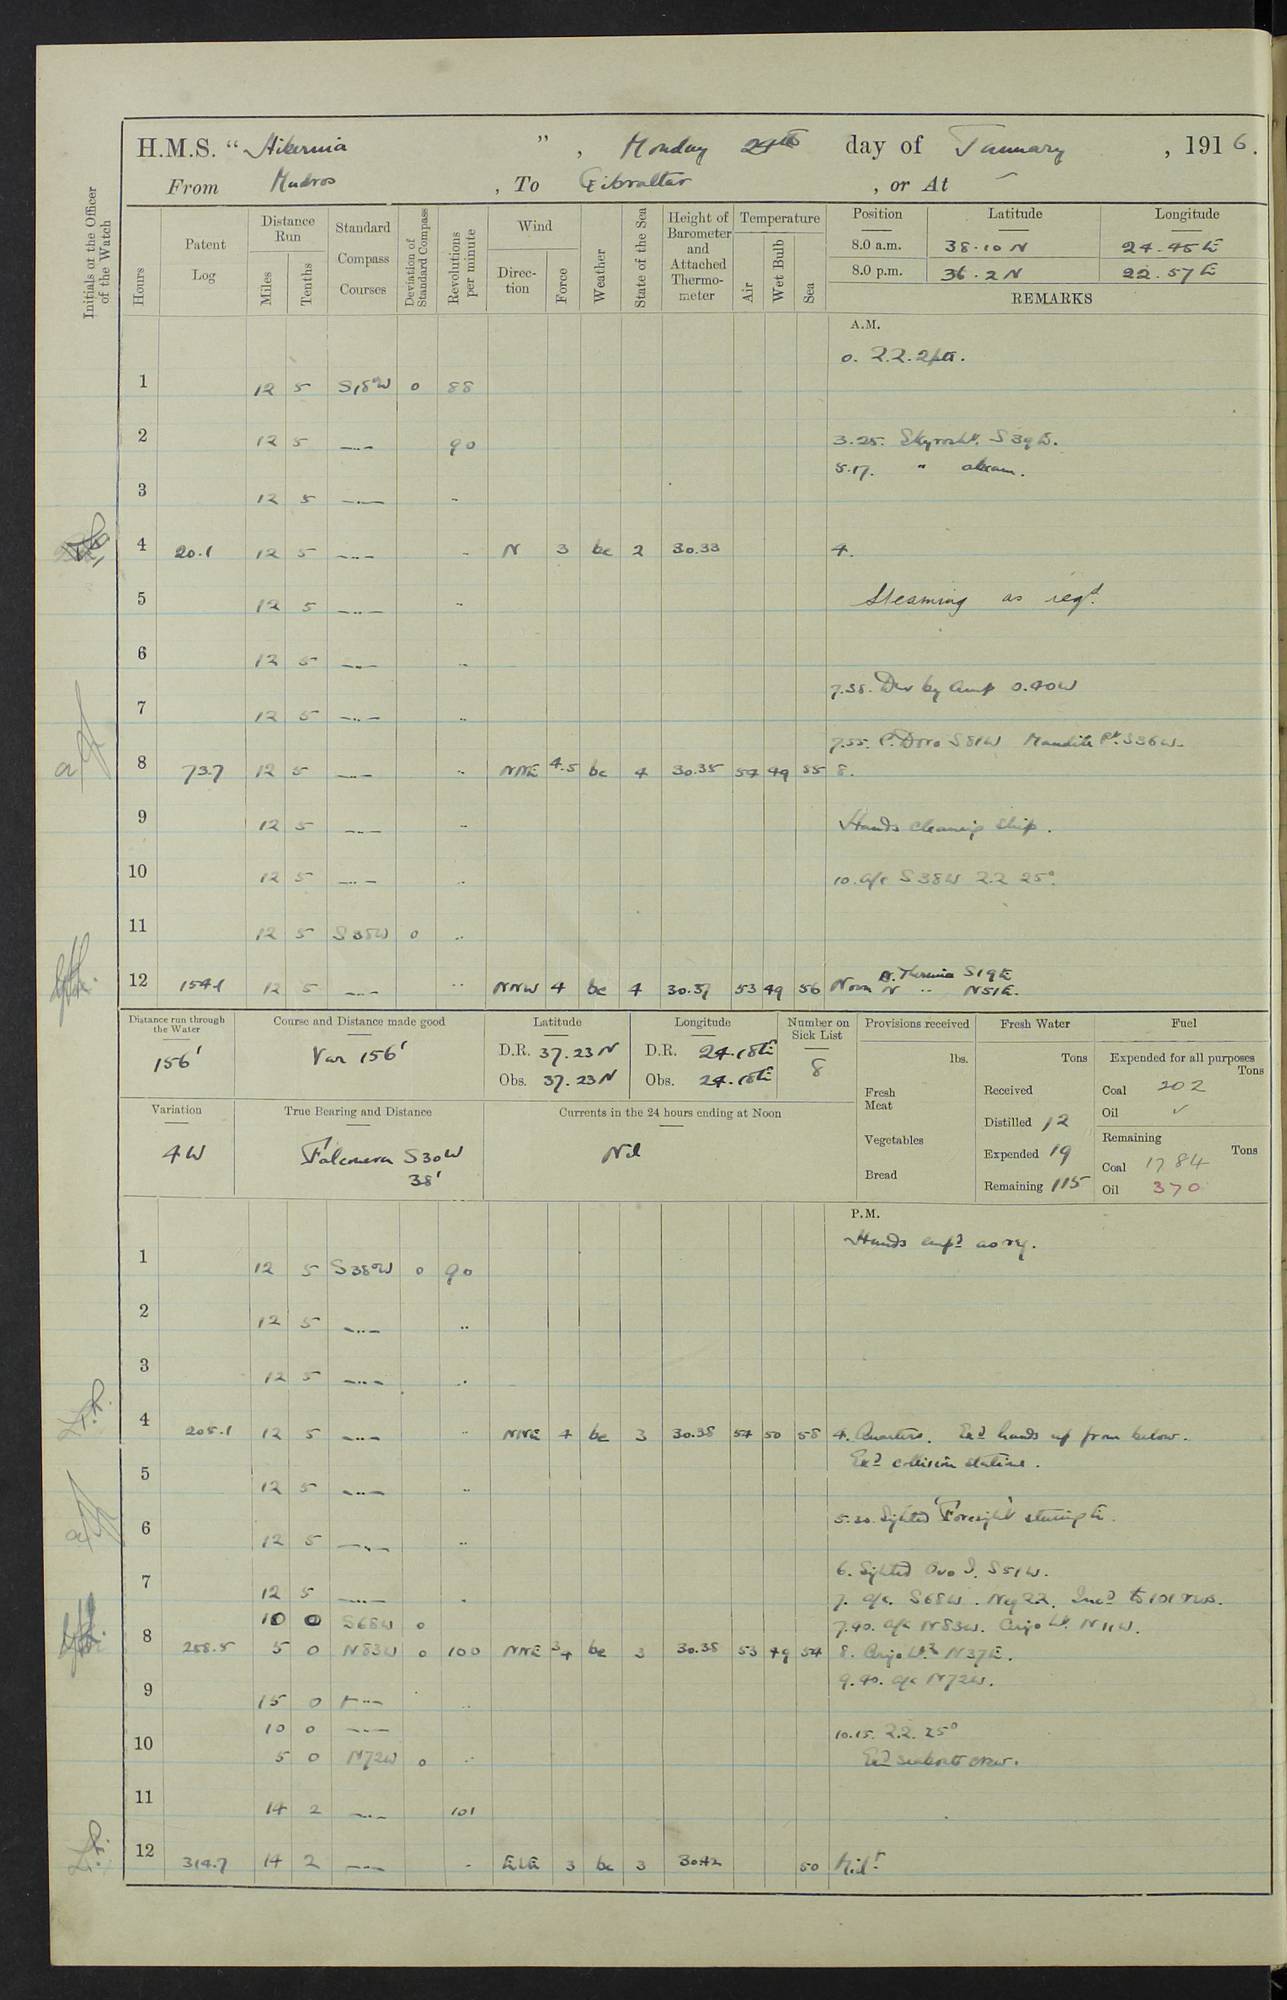 H.M.S. “ Hibernia ” , Monday 24th day of January , 1916 .
From Mudros , To Gibraltar , or At
Initials of the Officer of the Watch
Hours
Patent Log
Distance Run
Miles
Tenths
Standard Compass Courses
Deviation of Standard Compass
Revolutions per minute
Wind
Direc-tion
Force
Weather
State of the Sea
Height of Barometer and Attached Thermo-meter
Temperature
Air
Wet Bulb
Sea
Position Latitude Longitude
8.0 a.m. 38.10 N 24.45 E
8.0 p.m. 36.2 N 22.57 E
REMARKS
A.M.
0. 2.2. 2 pts.
1 12 5 S18W 0 88
2 12 5 —..— 90 3.25. Skyros Lt. S 39 E.
5.17. " abeam.
3 12 5 —..— ..
4 20.1 12 5 —..— .. N 3 bc 2 30.33 4.
5 12 5 —..— .. Steaming as reqd.
6 12 5 —..— ..
7.38. Dev by Amp 0.40W
7 12 5 —..— ..
7.55. C. Doro S 81W Mandili Pt. S36W.
8 73.7 12 5 —..— .. NNE 4.5 bc 4 30.35 54 49 55 8.
9 12 5 —..— .. Hands cleaning ship.
10 12 5 —..— .. 10. a/c S 38W 2.2 25°.
11 12 5 S38W 0 ..
12 154.1 12 5 —..— .. NNW 4 bc 4 30.37 53 49 56 Noon S. Thermia S19E
N " N51E.
Distance run through the Water
156'
Course and Distance made good
Var 156'
Latitude
D.R. 37.23 N
Obs. 37.23 N
Longitude
D.R. 24.18E
Obs. 24.18E
Number on Sick List
8
Variation
4W
True Bearing and Distance
Falconera S30W
38'
Currents in the 24 hours ending at Noon
Nil
Provisions received
lbs.
Fresh Meat
Vegetables
Bread
Fresh Water
Tons
Received
Distilled 12
Expended 19
Remaining 115
Fuel
Expended for all purposes
Tons
Coal 202
Oil ✓
Remaining
Tons
Coal 1784
Oil 370
P.M.
Hands empd as req.
1 12 5 S38W 0 90
2 12 5 —..— ..
3 12 5 —..— ..
4 205.1 12 5 —..— .. NNE 4 bc 3 30.38 54 50 58 4. Quarters. Exd hands up from below.
Exd collision stations.
5 12 5 —..— ..
5.30. Sighted 'Foresight' steering E.
6 12 5 —..— ..
6. Sighted Ovo I. S51W.
7 12 5 —..— . 7. a/c. S68W. Neg 22. Incd to 101 revs.
10 0 S68W 0 7.40. a/c N83W. Cerigo Lt. N11W.
8 258.5 5 0 N83W 0 100 NNE 3.4 bc 3 30.38 53 49 54 8. Cerigo Lt. N37E.
9.40. a/c N72W.
9 15 0 —..— ..
10 0 —..— 10.15. 2.2. 25°
10 5 0 N72W 0 .. Exd seaboats crew.
11 14 2 —..— 101
12 314.7 14 2 —..— .. ExE 3 bc 3 30.42 50 Midt